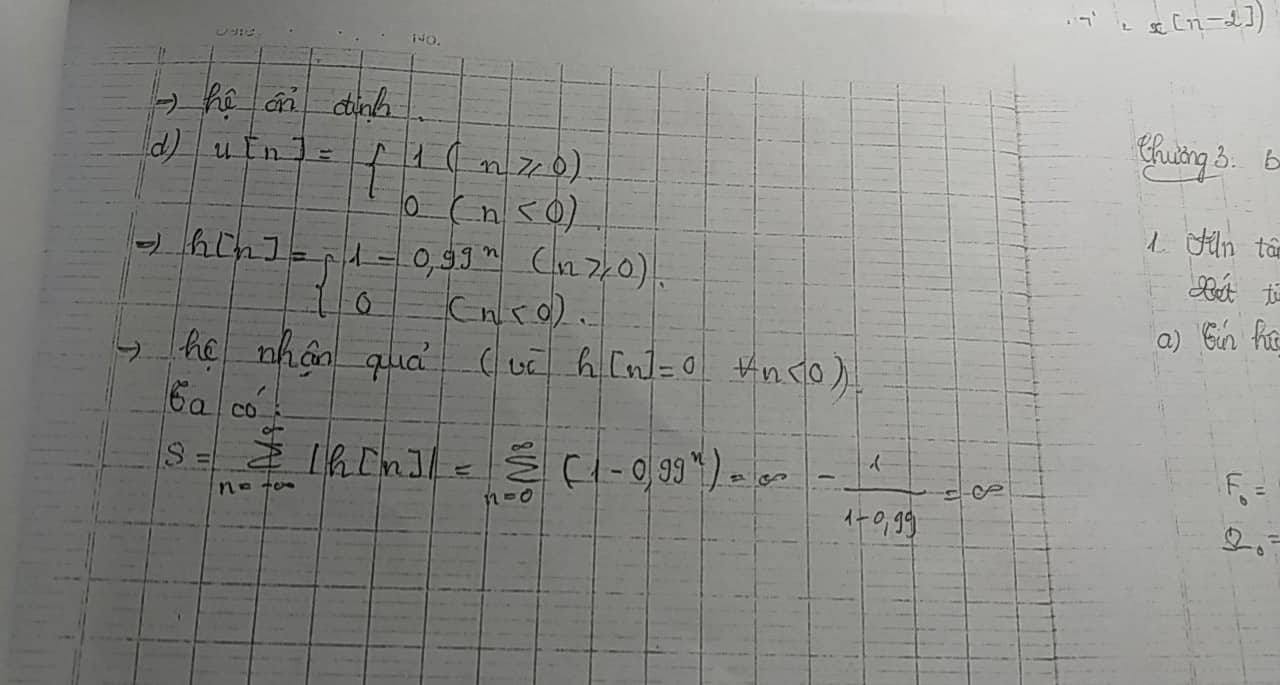 x[n-2])
No.
→ hệ ổn định.
d) u[n] = { 1 (n ≥ 0).
0 (n < 0)
→ h[n] = { 1 - 0,99ⁿ (n ≥ 0).
0 (n < 0).
→ hệ nhân quả (vì h[n] = 0 ∀n<0).
Ta có:
S = ∑_{n=-∞}^{∞} |h[n]| = ∑_{n=0}^{∞} (1-0,99ⁿ) = ∞ - 1/(1-0,99) = ∞
Chương 3:
1.
a) Tín
F₀ =
Ω₀ =